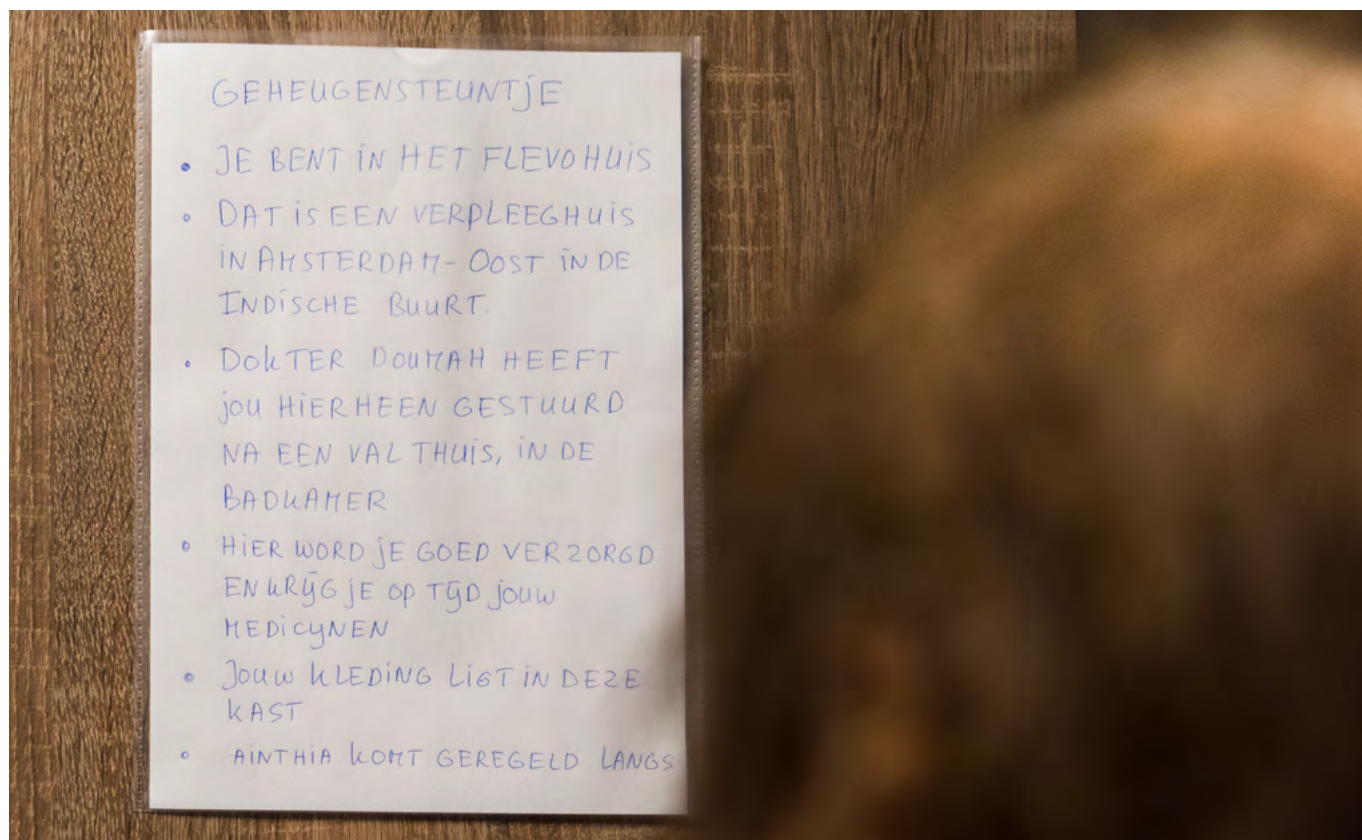 GEHEUGENSTEUNTJE
• JE BENT IN HET FLEVOHUIS
• DAT IS EEN VERPLEEGHUIS
IN AMSTERDAM-OOST IN DE
INDISCHE BUURT.
• DOKTER DOUMAH HEEFT
JOU HIERHEEN GESTUURD
NA EEN VAL THUIS, IN DE
BADKAMER
• HIER WORD JE GOED VERZORGD
EN KRIJG JE OP TIJD JOUW
MEDICYNEN
• JOUW KLEDING LIGT IN DEZE
KAST
• AINTHIA KOMT GEREGELD LANGS